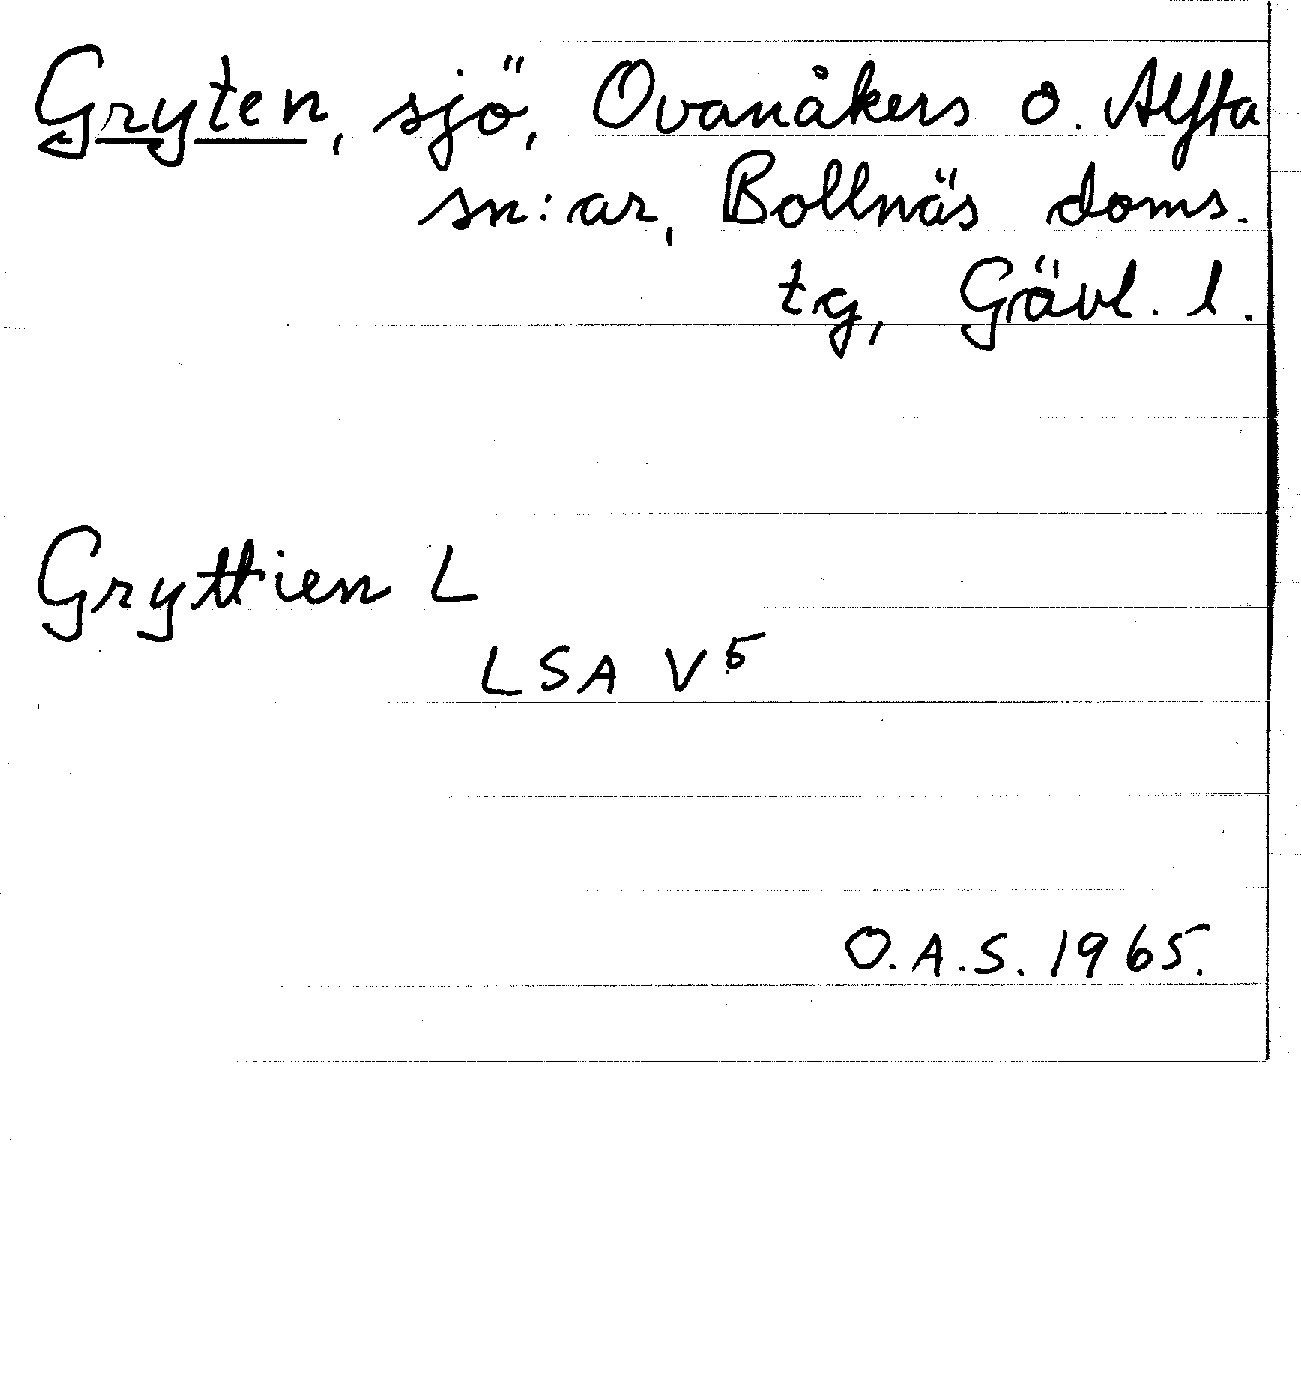 Gryten, sjö, Ovanåkers o. Alfta
sn:ar, Bollnäs doms.
tg, Gävl. l.
Gryttien L
LSA V⁵
O.A.S. 1965.